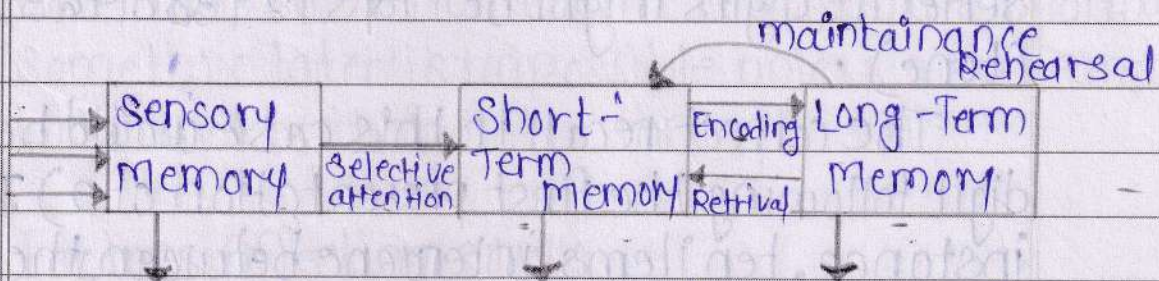 maintainance
Rehearsal
Sensory
Memory
Selective
attention
Short-
Term
Memory
Encoding
Retrival
Long-Term
Memory